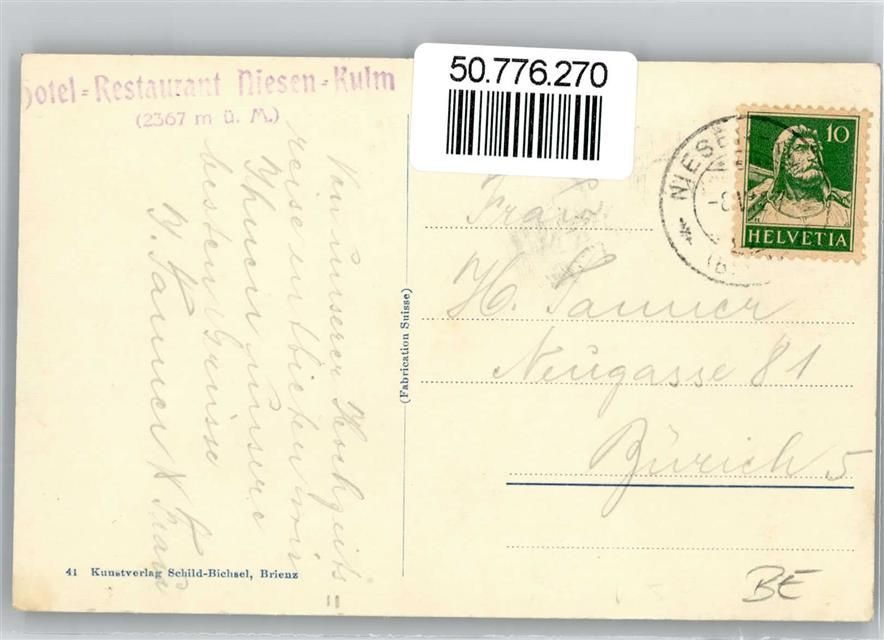 Hotel-Restaurant Niesen-Kulm
(2367 m ü. M.)
50.776.270
10
HELVETIA
NIESE
Von unserer Hochzeits=
reise entbieten wir
Ihnen unsere
besten Grüsse
H. Tanner & Frau
(Fabrication Suisse)
Frau
H. Tanner
Neugasse 81
Zürich 5
41 Kunstverlag Schild-Bichsel, Brienz
BE